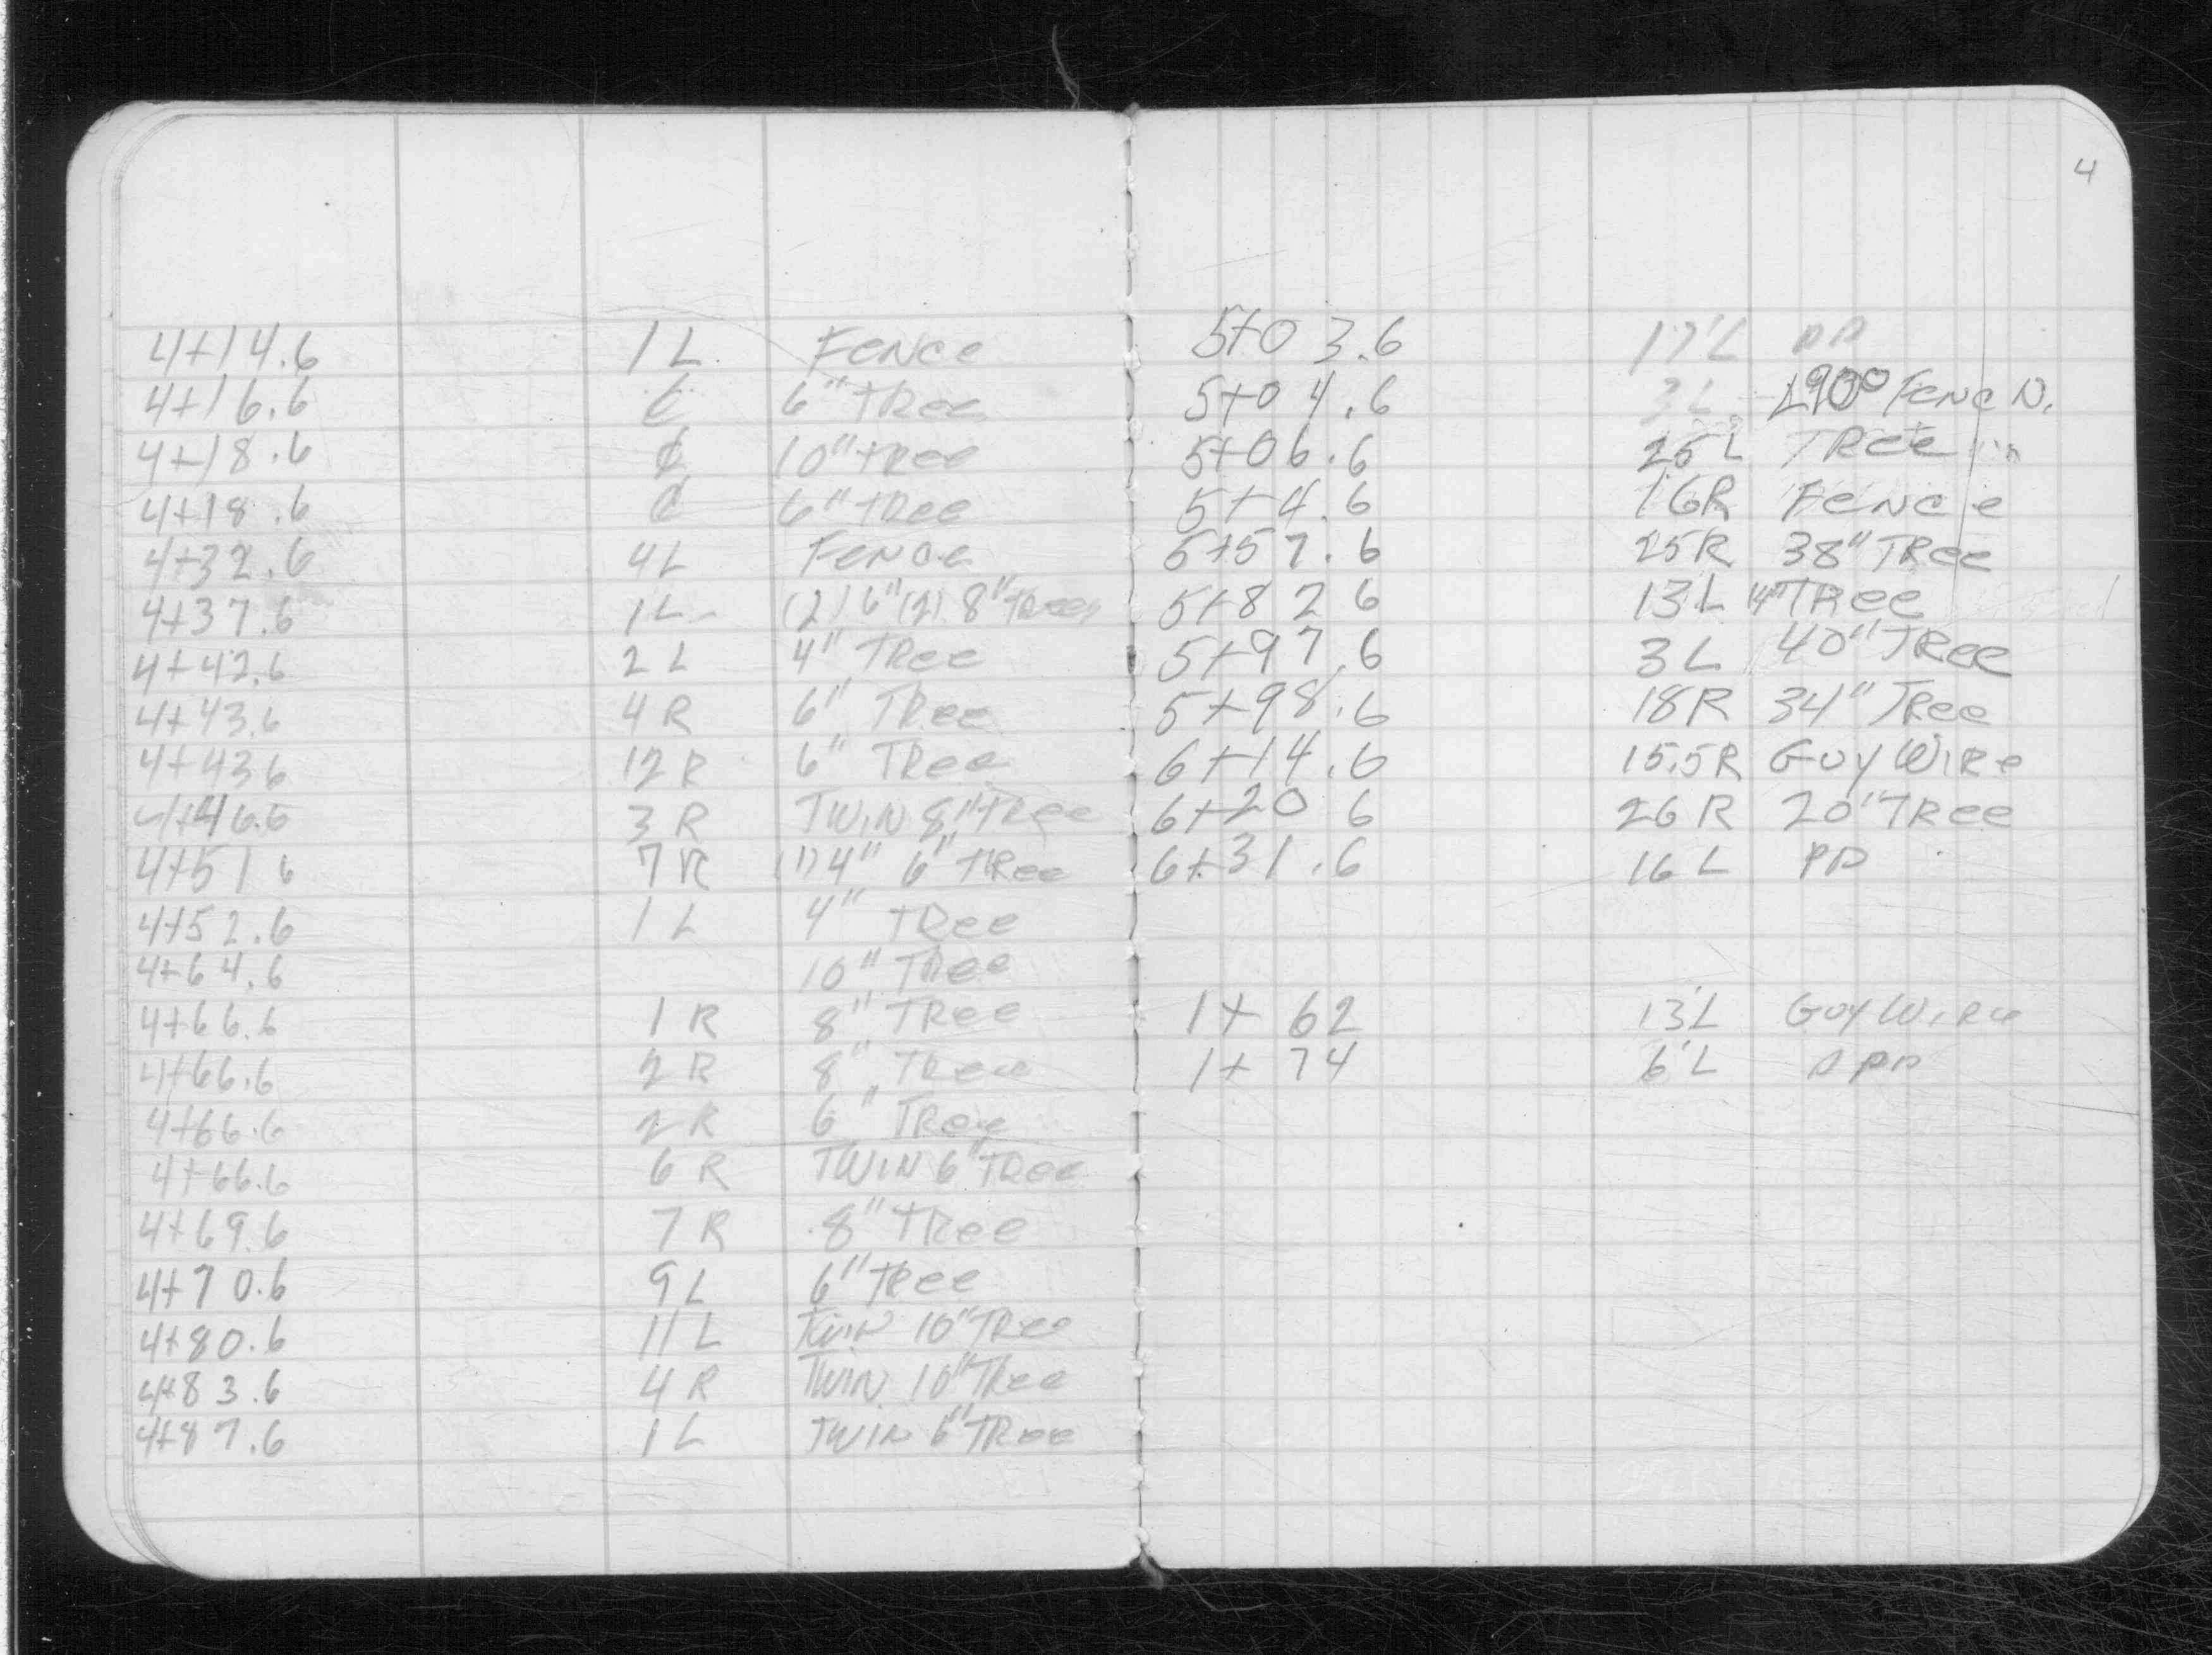 4+14.6 1 L Fence
4+16.6 ℄ 6" Tree
4+18.6 ℄ 10" tree
4+18.6 ℄ 6" tree
4+32.6 4L Fence
4+37.6 1 L (2) 6" (2) 8" trees
4+42.6 2 L 4" Tree
4+43.6 4 R 6" Tree
4+43 6 12 R 6" Tree
4+46.6 3 R TWIN 8" tree
4+51 6 7 R (1) 4" 6" tree
4+52.6 1 L 4" tree
4+64.6 10" Tree
4+66.6 1 R 8" Tree
4+66.6 2 R 8" Tree
4+66.6 2 R 6" Tree
4+66.6 6 R TWIN 6" Tree
4+69.6 7 R 8" tree
4+70.6 9 L 6" tree
4+80.6 11 L Twin 10" Tree
4+83.6 4 R TWIN 10" Tree
4+87.6 1 L TWIN 6" Tree
4
5+03.6 17'L PP
5+04.6 3L ∠90° Fenc N.
5+06.6 25 L TRee
5+4.6 16R Fence
5+57.6 25R 38" TRee
5+82 6 13L 14" TRee
5+97.6 3 L 40" TRee
5+98.6 18R 34" Tree
6+14.6 15.5R Guy Wire
6+20 6 26 R 20" TRee
6+31.6 16 L PP
1+ 62 13'L Guy Wire
1+ 74 6'L